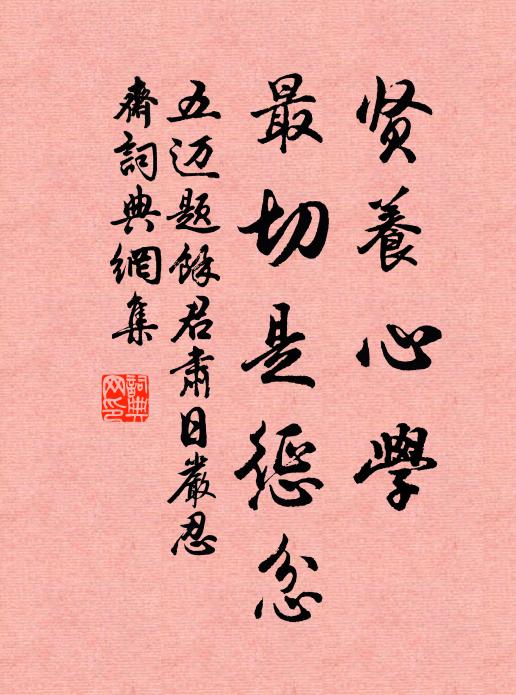 贤養心學
最切是懲忿
五迈题餘君肃日嚴忍
齋詞典網集
詞典網印